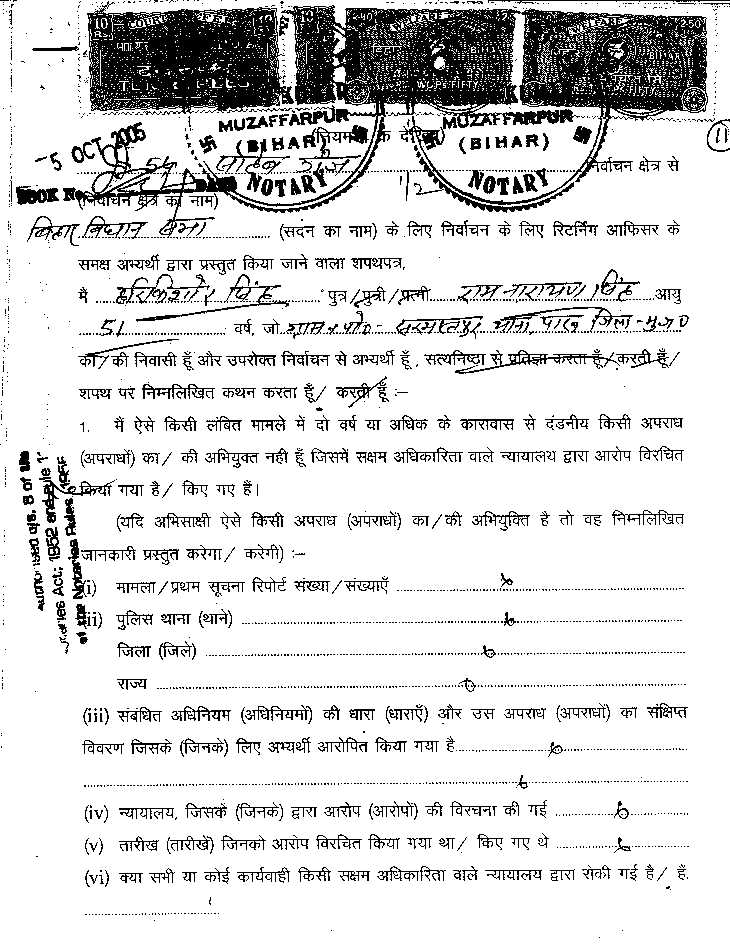 10
250
MUZAFFARPUR
(BIHAR)
NOTARY
MUZAFFARPUR
(BIHAR)
NOTARY
11
-5 OCT 2005
54 निर्वाचन क्षेत्र से
BOOK No.
1/2
(निर्वाचन क्षेत्र का नाम)
बिहार विधान सभा (सदन का नाम) के लिए निर्वाचन के लिए रिटर्निंग आफिसर के
समक्ष अभ्यर्थी द्वारा प्रस्तुत किया जाने वाला शपथपत्र,
मैं हरिकिशोर सिंह पुत्र/पुत्री/पत्नी रामनारायण सिंह आयु
51 वर्ष, जो ग्राम+पो०- थाना, पारू जिला-मुज०
का/की निवासी हूँ और उपरोक्त निर्वाचन से अभ्यर्थी हूँ, सत्यनिष्ठा से प्रतिज्ञा करता हूँ/करती हूँ/
शपथ पर निम्नलिखित कथन करता हूँ/ करती हूँ :–
1. मैं ऐसे किसी लंबित मामले में दो वर्ष या अधिक के कारावास से दंडनीय किसी अपराध
(अपराधों) का/ की अभियुक्त नही हूँ जिसमें सक्षम अधिकारिता वाले न्यायालय द्वारा आरोप विरचित
किया गया है/ किए गए हैं।
(यदि अभिसाक्षी ऐसे किसी अपराध (अपराधों) का/की अभियुक्ति है तो वह निम्नलिखित
जानकारी प्रस्तुत करेगा/ करेगी) :–
(i) मामला/प्रथम सूचना रिपोर्ट संख्या/संख्याएँ
(ii) पुलिस थाना (थाने)
जिला (जिले)
राज्य
(iii) संबंधित अधिनियम (अधिनियमों) की धारा (धाराएँ) और उस अपराध (अपराधों) का संक्षिप्त
विवरण जिसके (जिनके) लिए अभ्यर्थी आरोपित किया गया है
(iv) न्यायालय, जिसके (जिनके) द्वारा आरोप (आरोपों) की विरचना की गई
(v) तारीख (तारीखें) जिनको आरोप विरचित किया गया था/ किए गए थे
(vi) क्या सभी या कोई कार्यवाही किसी सक्षम अधिकारिता वाले न्यायालय द्वारा रोकी गई है/ हैं.